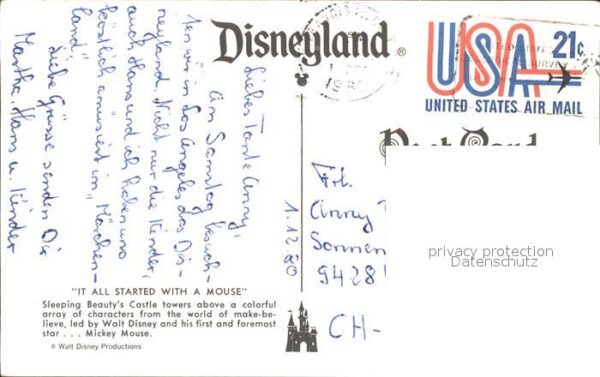 Disneyland®
USA 21c
UNITED STATES AIR MAIL
Post Card
1.12.80
Liebe Tante Anny,
Am Samstag besuch-
ten wir in Los Angeles das Dis-
neyland. Nicht nur die Kinder,
auch Hans und ich haben uns
köstlich amüsiert im "Märchen-
land".
Liebe Grüsse senden Dir
Martha, Hans u. Kinder
Frl.
Anny
Sonnen
9428
CH-
privacy protection
Datenschutz
"IT ALL STARTED WITH A MOUSE"
Sleeping Beauty's Castle towers above a colorful
array of characters from the world of make-be-
lieve, led by Walt Disney and his first and foremost
star . . . Mickey Mouse.
© Walt Disney Productions